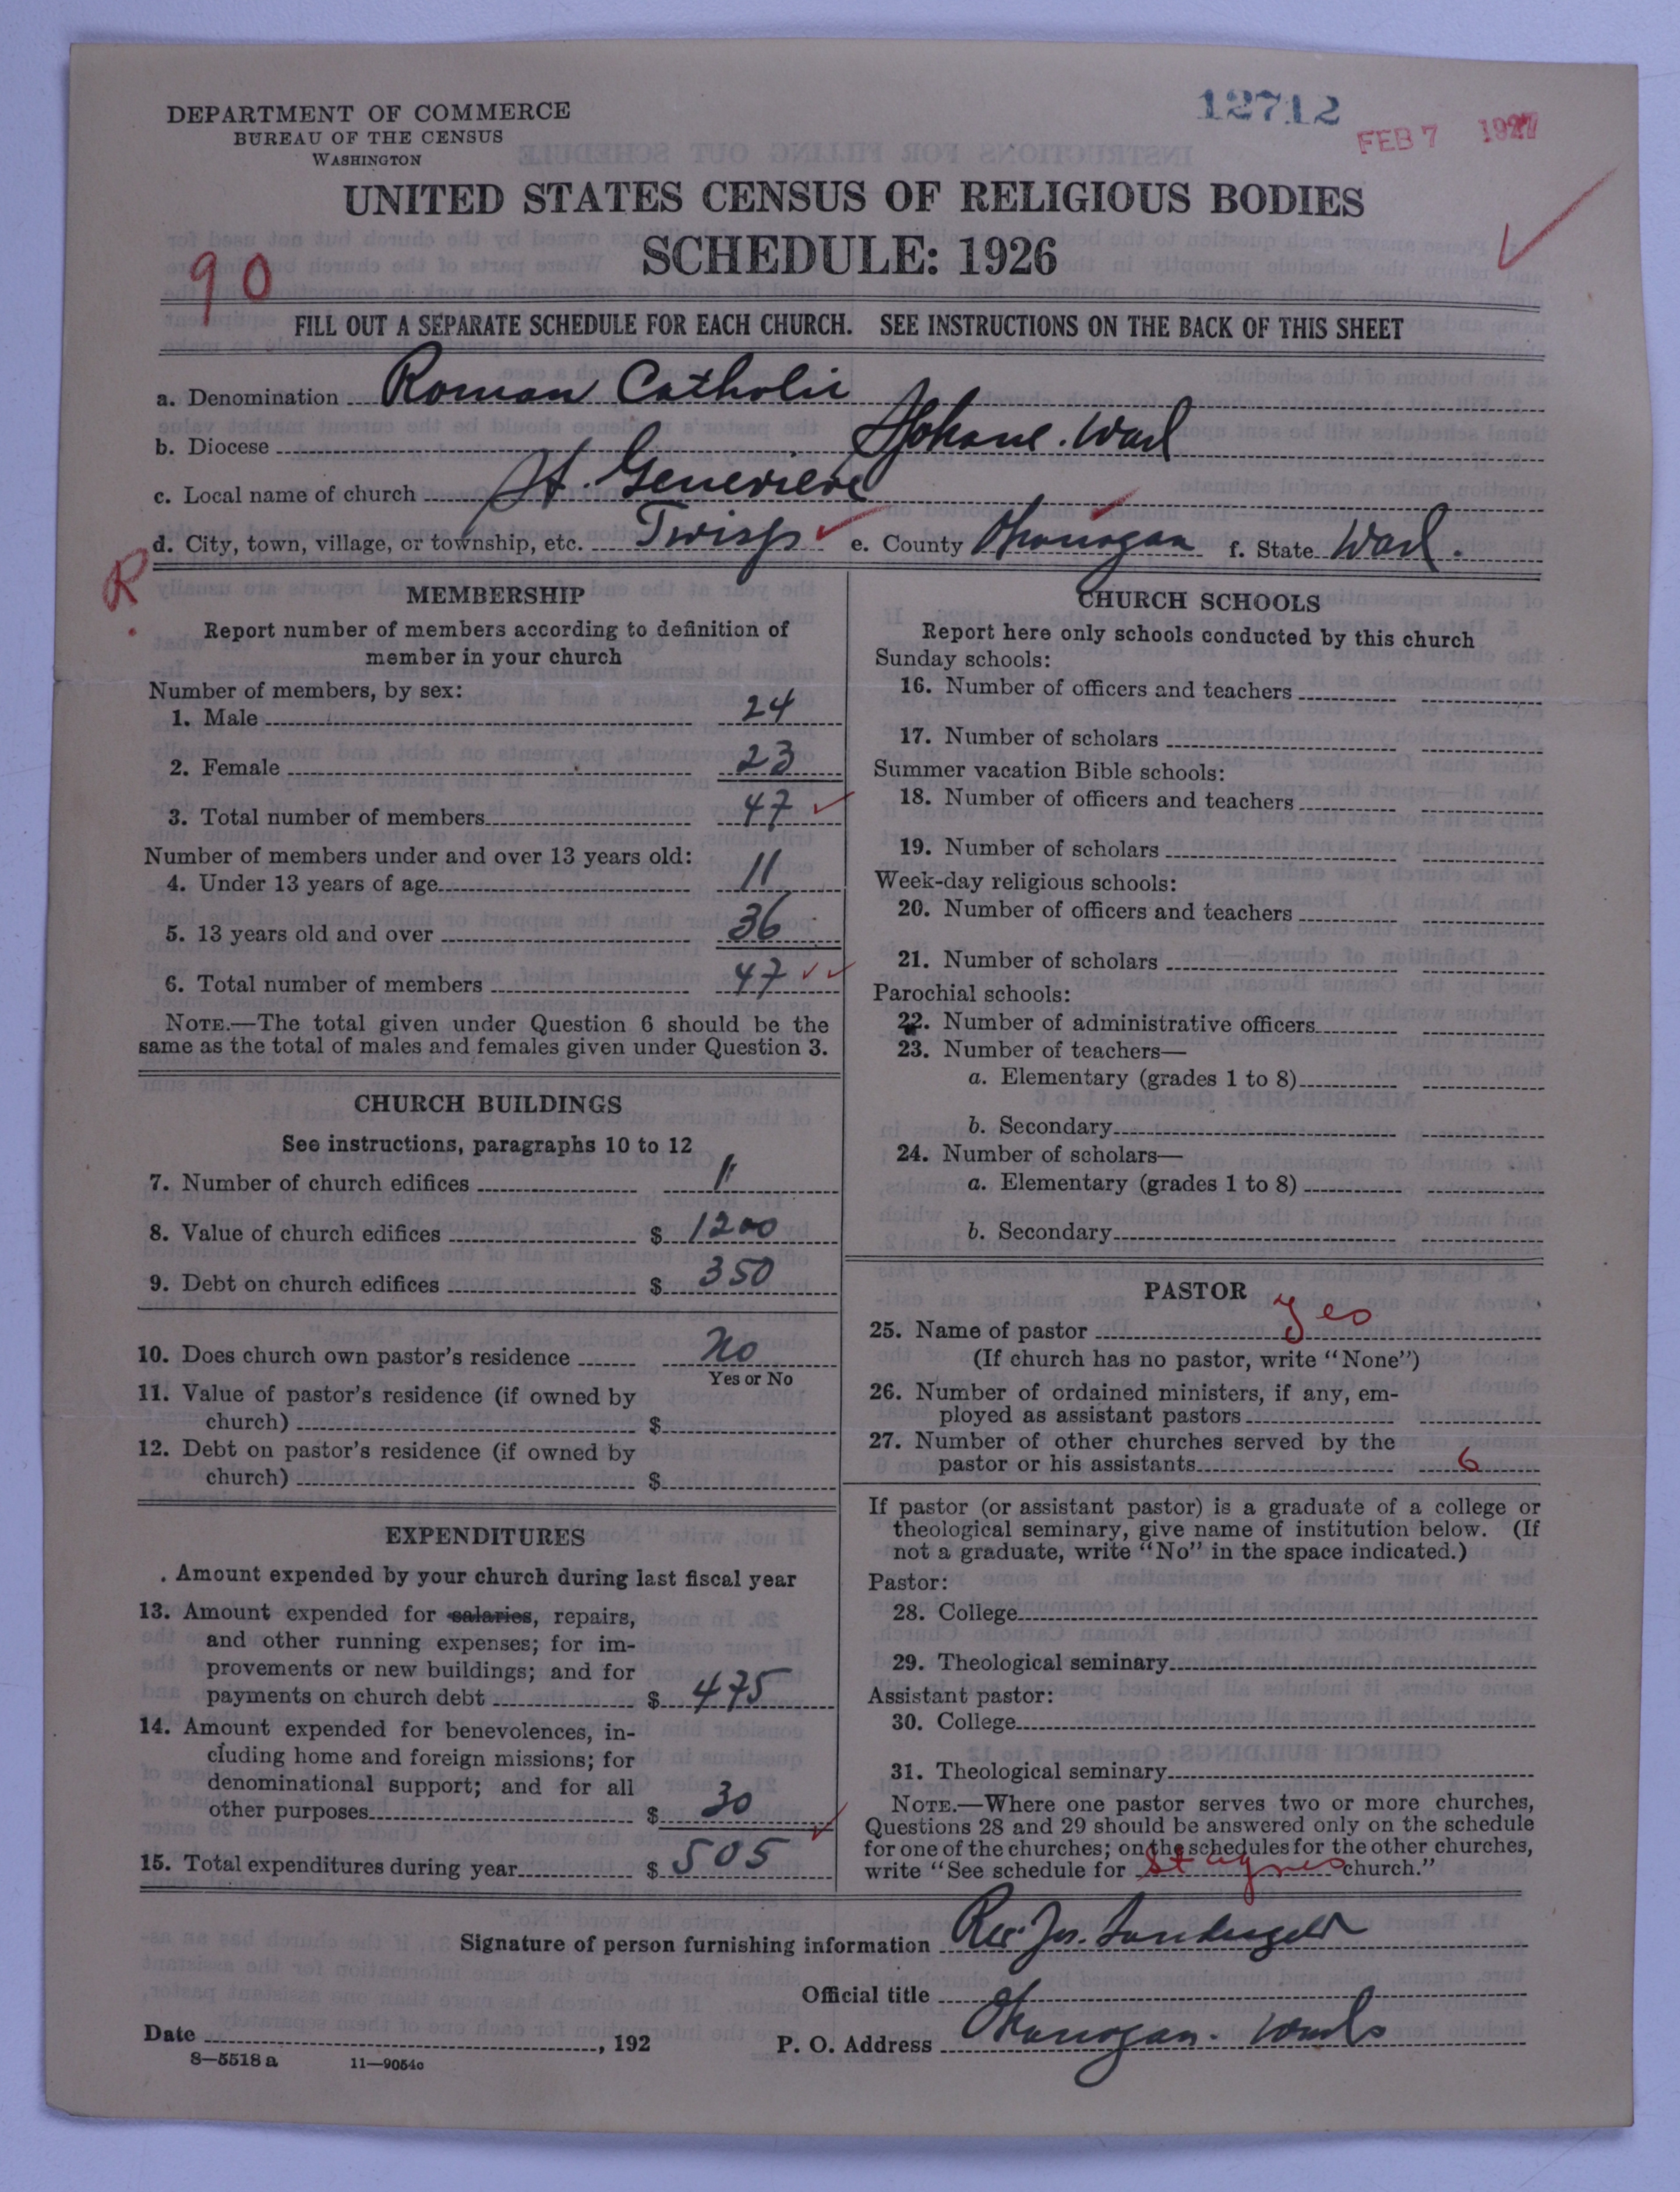 DEPARTMENT OF COMMERCE
BUREAU OF THE CENSUS
WASHINGTON
12712
FEB 7 1927
UNITED STATES CENSUS OF RELIGIOUS BODIES
SCHEDULE: 1926
90
FILL OUT A SEPARATE SCHEDULE FOR EACH CHURCH. SEE INSTRUCTIONS ON THE BACK OF THIS SHEET
a. Denomination Roman Catholic
b. Diocese Spokane. Wash
c. Local name of church St. Genevieve
d. City, town, village, or township, etc. Twisp e. County Okanogan f. State Wash.
R
MEMBERSHIP
Report number of members according to definition of
member in your church
Number of members, by sex:
1. Male 24
2. Female 23
3. Total number of members 47
Number of members under and over 13 years old:
4. Under 13 years of age 11
5. 13 years old and over 36
6. Total number of members 47
NOTE.—The total given under Question 6 should be the
same as the total of males and females given under Question 3.
CHURCH BUILDINGS
See instructions, paragraphs 10 to 12
7. Number of church edifices 1
8. Value of church edifices $ 1200
9. Debt on church edifices $ 350
10. Does church own pastor's residence No
Yes or No
11. Value of pastor's residence (if owned by
church) $
12. Debt on pastor's residence (if owned by
church) $
EXPENDITURES
Amount expended by your church during last fiscal year
13. Amount expended for salaries, repairs,
and other running expenses; for im-
provements or new buildings; and for
payments on church debt $ 475
14. Amount expended for benevolences, in-
cluding home and foreign missions; for
denominational support; and for all
other purposes $ 30
15. Total expenditures during year $ 505
CHURCH SCHOOLS
Report here only schools conducted by this church
Sunday schools:
16. Number of officers and teachers
17. Number of scholars
Summer vacation Bible schools:
18. Number of officers and teachers
19. Number of scholars
Week-day religious schools:
20. Number of officers and teachers
21. Number of scholars
Parochial schools:
22. Number of administrative officers
23. Number of teachers—
a. Elementary (grades 1 to 8)
b. Secondary
24. Number of scholars—
a. Elementary (grades 1 to 8)
b. Secondary
PASTOR
25. Name of pastor Yes
(If church has no pastor, write "None")
26. Number of ordained ministers, if any, em-
ployed as assistant pastors
27. Number of other churches served by the
pastor or his assistants 6
If pastor (or assistant pastor) is a graduate of a college or
theological seminary, give name of institution below. (If
not a graduate, write "No" in the space indicated.)
Pastor:
28. College
29. Theological seminary
Assistant pastor:
30. College
31. Theological seminary
NOTE.—Where one pastor serves two or more churches,
Questions 28 and 29 should be answered only on the schedule
for one of the churches; on the schedules for the other churches,
write "See schedule for St Agnes church."
Signature of person furnishing information Rev. Jos.
Official title
Date , 192 P. O. Address Okanogan. Wash
8—5518 a 11—9054c